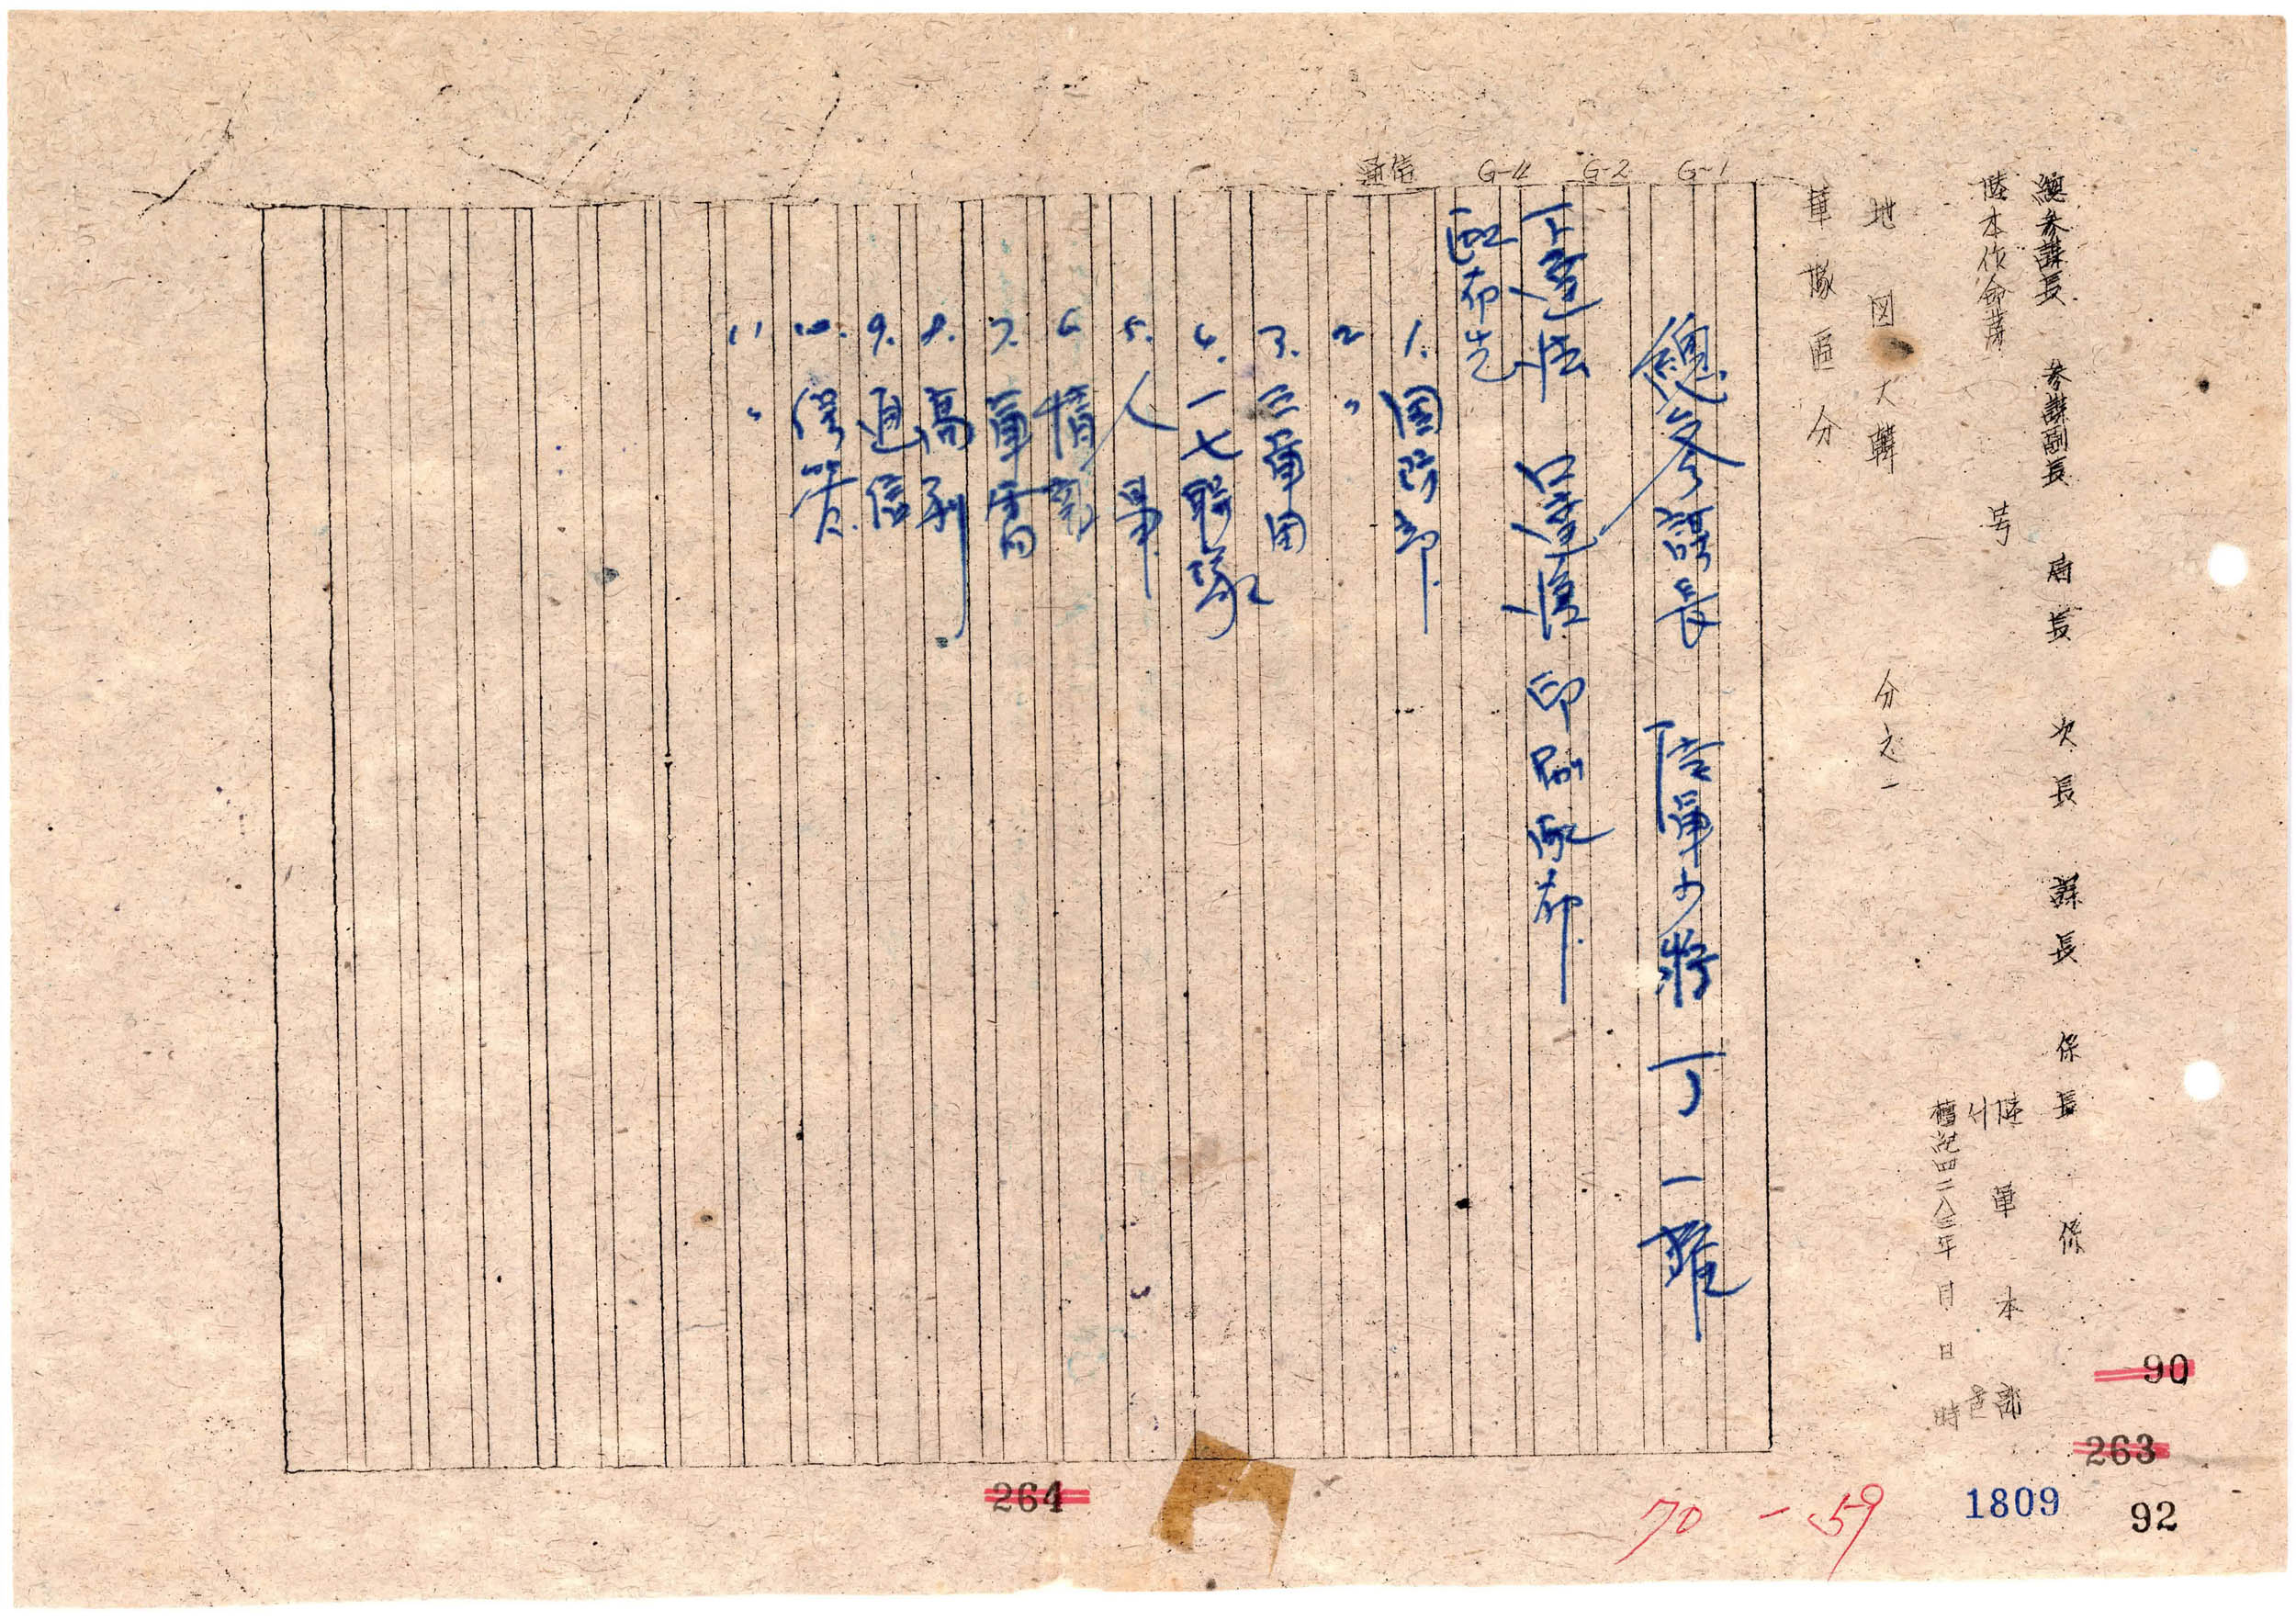 總參謀長 參謀副長 局長 次長 課長 係長 係
陸本作命第 号
陸軍本部
檀紀四二八三年 月 日 時
地図 大韓 分之一
軍隊區分
G-1
G-2
G-4
通信
總參謀長 陸軍少將 丁一權
下達法 口達後印刷配布
配布先
1. 國防部
2. 〃
3. 三軍団
4. 一七聯隊
5. 人事
6. 情報
7. 軍需
8. 高射
9. 通信
10.
11. 〃
90
263
264
1809
92
70-59